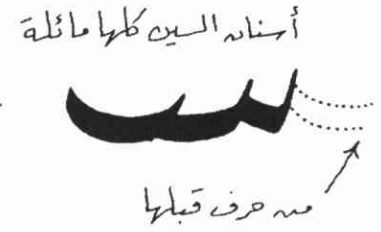 أسنان السين كلها مائلة
من حرف قبلها